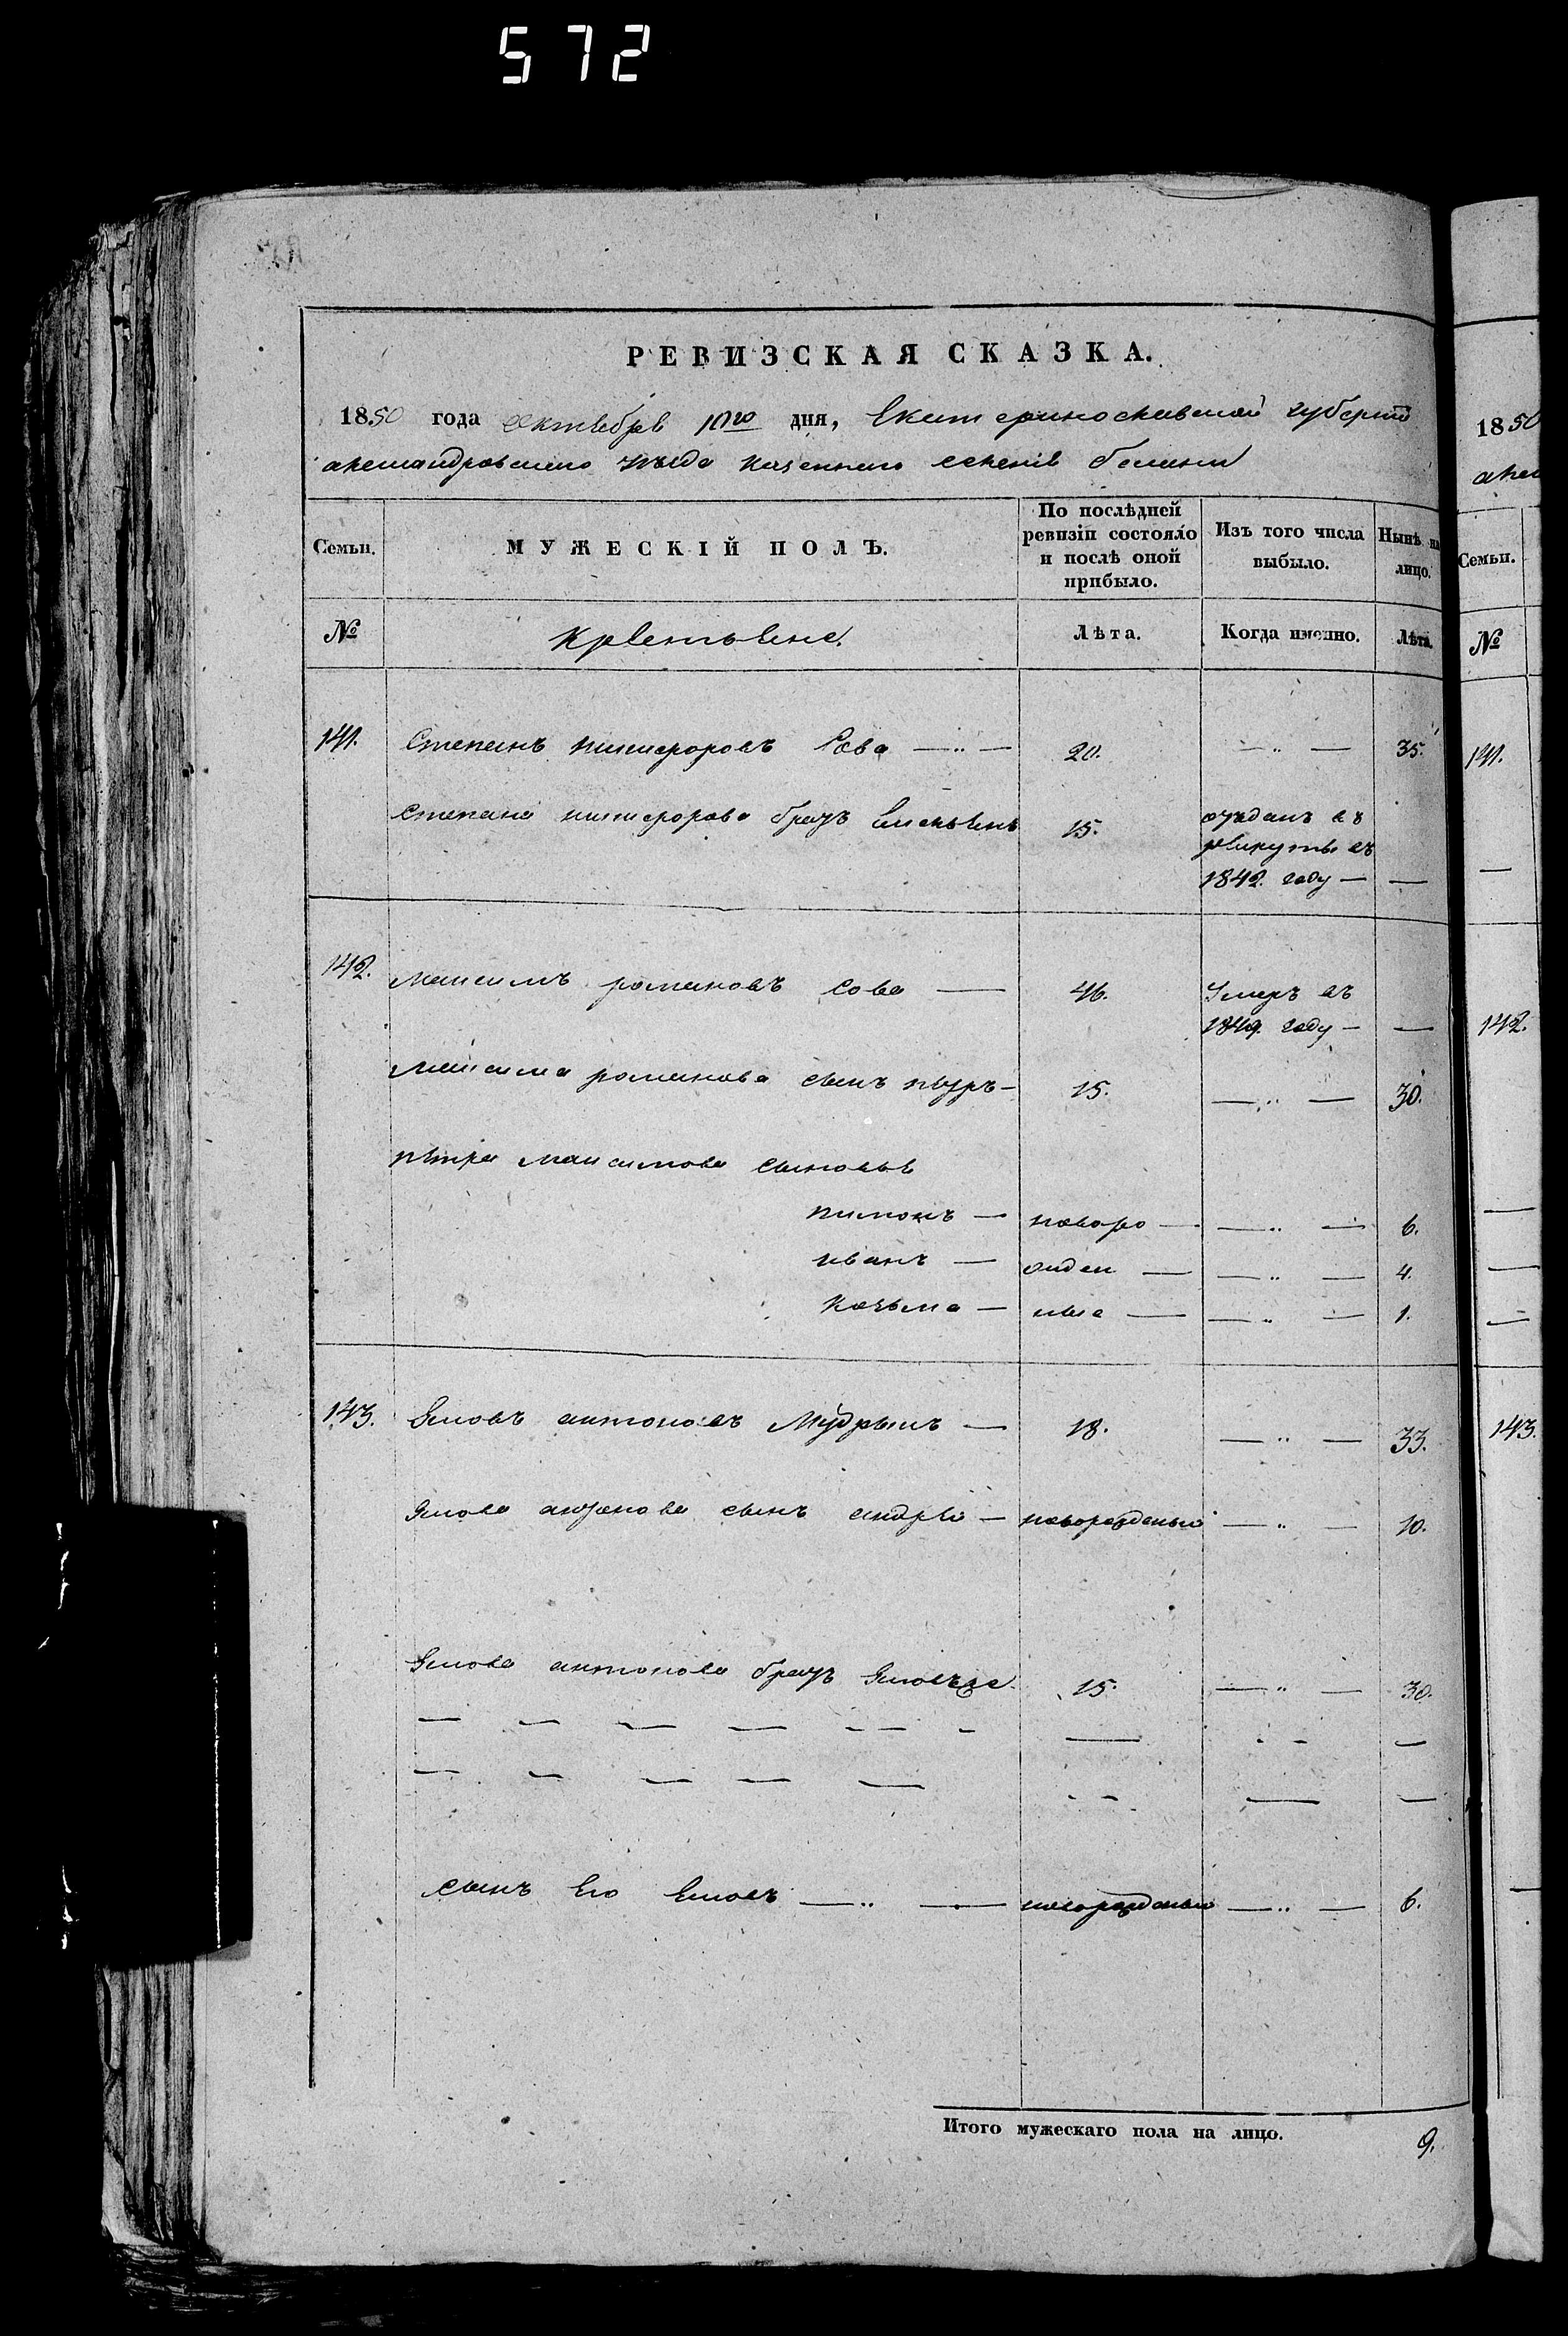 572
РЕВИЗСКАЯ СКАЗКА.
1850 года октября 10го дня, Екатеринославской губерніи
александровскаго уѣзда казеннаго селенія
Семьи. МУЖЕСКІЙ ПОЛЪ. По послѣдней ревизіи состояло и послѣ оной прибыло. Изъ того числа выбыло. Нынѣ на лицо.
№ крестьяне. Лѣта. Когда именно. Лѣта.
141. Степанъ никифоровъ Сова — „ — 20. — „ — 35.
Степана никифорова братъ емельянъ 15. отданъ въ
рекруты въ
1842. году — —
142. максимъ романовъ сова — 46. Умеръ въ
1849. году — —
максима романова сынъ петръ — 15. — „ — 30.
петра максимова сыновья
пимонъ — новоро — — „ — 6.
иванъ — жден — — „ — 4.
козьма — ные — — „ — 1.
143. Яковъ антоновъ Мудрыкъ — 18. — „ — 33.
Якова антонова сынъ андрей — новорожденый — „ — 10.
Якова антонова братъ Яковъже 15. — „ — 30.
сынъ его Яковъ — „ — новорожденый — „ — 6.
Итого мужескаго пола на лицо. 9.
1850
алек
Семьи.
№
141.
142.
143.